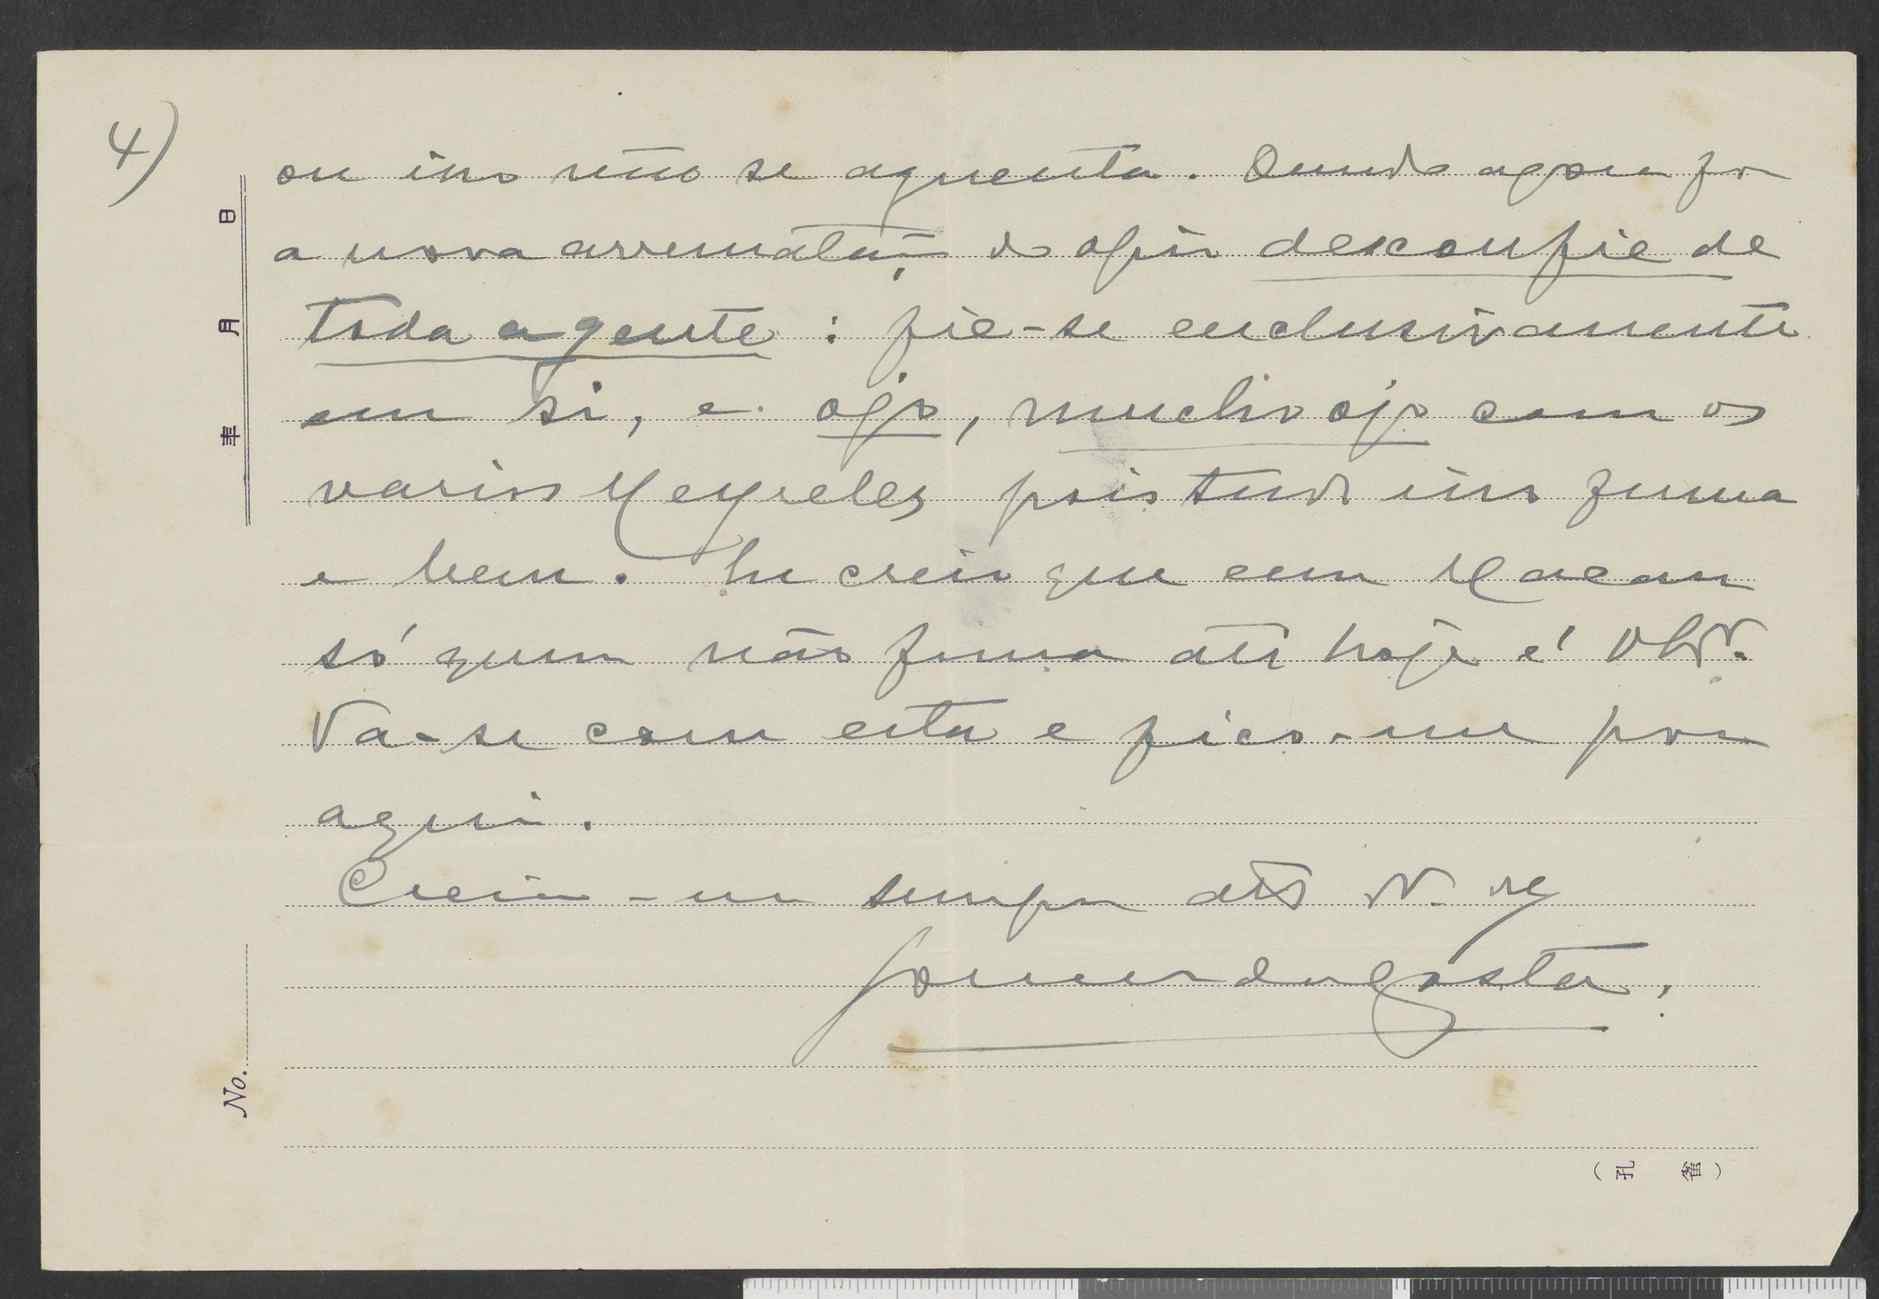 4)
ou isso não se aguenta. Quando agora for
a nova arrematação do opio desconfie de
toda a gente: fie-se exclusivamente
em si, e ojo, mucho ojo com os
varios Meyreles pois tudo isso fuma
e bem. Eu creio que em Macau
só quem não fuma até hoje é
Va-se com esta e fico-me por
aqui.
Creia-me sempre
Gomes da Costa.
日
月
年
No.
(孔雀)